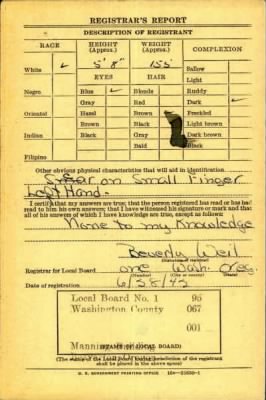 REGISTRAR'S REPORT
DESCRIPTION OF REGISTRANT
RACE HEIGHT (Approx.) WEIGHT (Approx.) COMPLEXION
White ✓ 5' 8" 155 Sallow
EYES HAIR Light
Negro Blue ✓ Blonde Ruddy
Gray Red Dark ✓
Oriental Hazel Brown Freckled
Brown Black Light brown
Indian Black Gray Dark brown
Bald Black
Filipino
Other obvious physical characteristics that will aid in identification
Scar on Small Finger
Left Hand.
I certify that my answers are true; that the person registered has read or has had
read to him his own answers; that I have witnessed his signature or mark and that
all of his answers of which I have knowledge are true, except as follows:
None to my Knowledge
Beverly Weil
(Signature of registrar)
Registrar for Local Board one Wash. Oreg.
(Number) (City or county) (State)
Date of registration 6/28/42
Local Board No. 1 95
Washington County 067
001
(STAMP OF LOCAL BOARD)
(The stamp of the Local Board having jurisdiction of the registrant
shall be placed in the above space)
U. S. GOVERNMENT PRINTING OFFICE